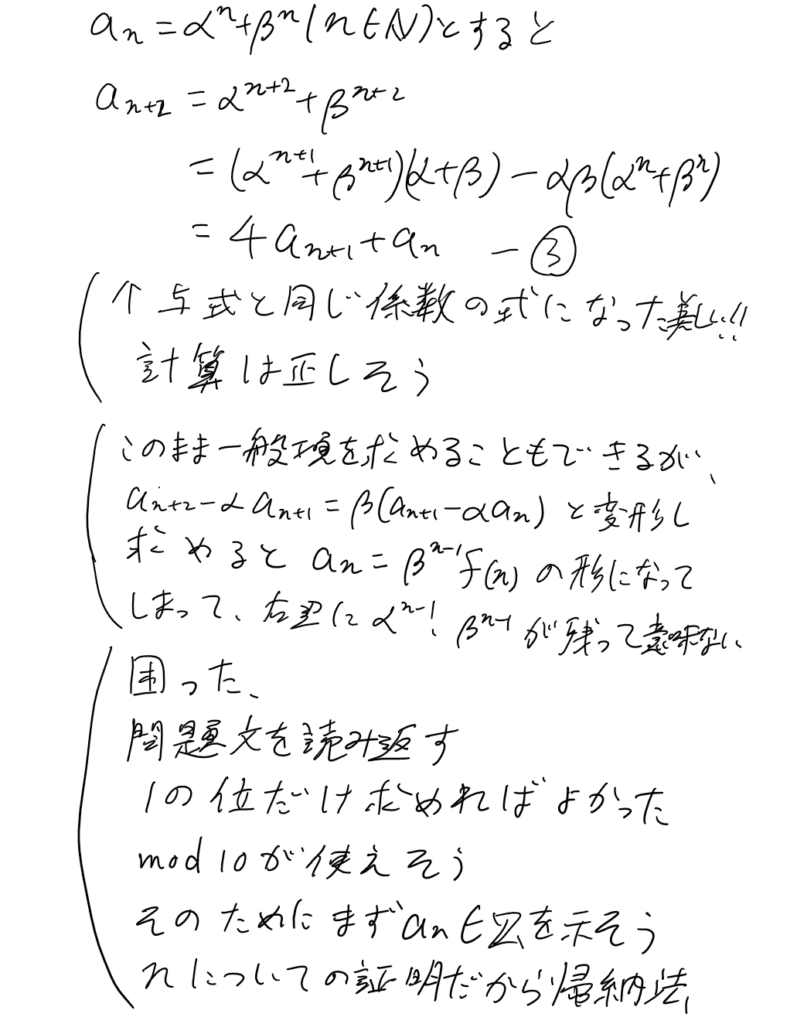 aₙ = αⁿ+βⁿ (n∈ℕ)とすると
aₙ₊₂ = αⁿ⁺²+βⁿ⁺²
= (αⁿ⁺¹+βⁿ⁺¹)(α+β) − αβ(αⁿ+βⁿ)
= 4aₙ₊₁+aₙ −③
↑与式と同じ係数の式になった美しい!!
計算は正しそう
このまま一般項を求めることもできるが、
aₙ₊₂−αaₙ₊₁ = β(aₙ₊₁−αaₙ) と変形し
求めると aₙ = βⁿ⁻¹f(n) の形になって
しまって、右辺に αⁿ⁻¹, βⁿ⁻¹ が残って意味ない
困った、
問題文を読み返す
1の位だけ求めればよかった
mod 10が使えそう
そのためにまずaₙ∈ℤを示そう
nについての証明だから帰納法、